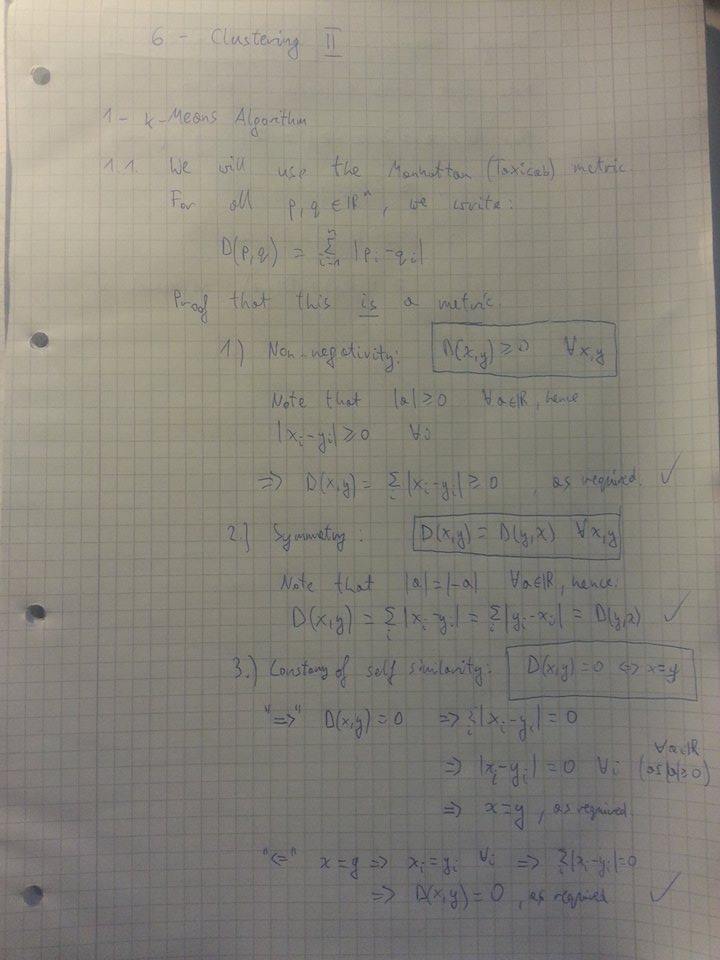 6 - Clustering II
1 - k-Means Algorithm
1.1. We will use the Manhattan (Taxicab) metric.
For all p,q ∈ ℝⁿ, we write:
D(p,q) = ∑ᵢ₌₁ⁿ |pᵢ-qᵢ|
Proof that this is a metric.
1.) Non-negativity: D(x,y) ≥ 0 ∀x,y
Note that |a| ≥ 0 ∀a∈ℝ, hence
|xᵢ-yᵢ| ≥ 0 ∀i
=> D(x,y) = ∑ᵢ |xᵢ-yᵢ| ≥ 0, as required. ✓
2.) Symmetry: D(x,y) = D(y,x) ∀x,y
Note that |a| = |-a| ∀a∈ℝ, hence:
D(x,y) = ∑ᵢ |xᵢ-yᵢ| = ∑ᵢ |yᵢ-xᵢ| = D(y,x) ✓
3.) Constancy of self similarity: D(x,y) = 0 <=> x=y
"=>" D(x,y) = 0 => ∑ᵢ |xᵢ-yᵢ| = 0
=> |xᵢ-yᵢ| = 0 ∀i (as |a| ≥ 0 ∀a∈ℝ)
=> x=y, as required.
"<=" x=y => xᵢ=yᵢ ∀i => ∑ᵢ |xᵢ-yᵢ| = 0
=> D(x,y) = 0, as required ✓